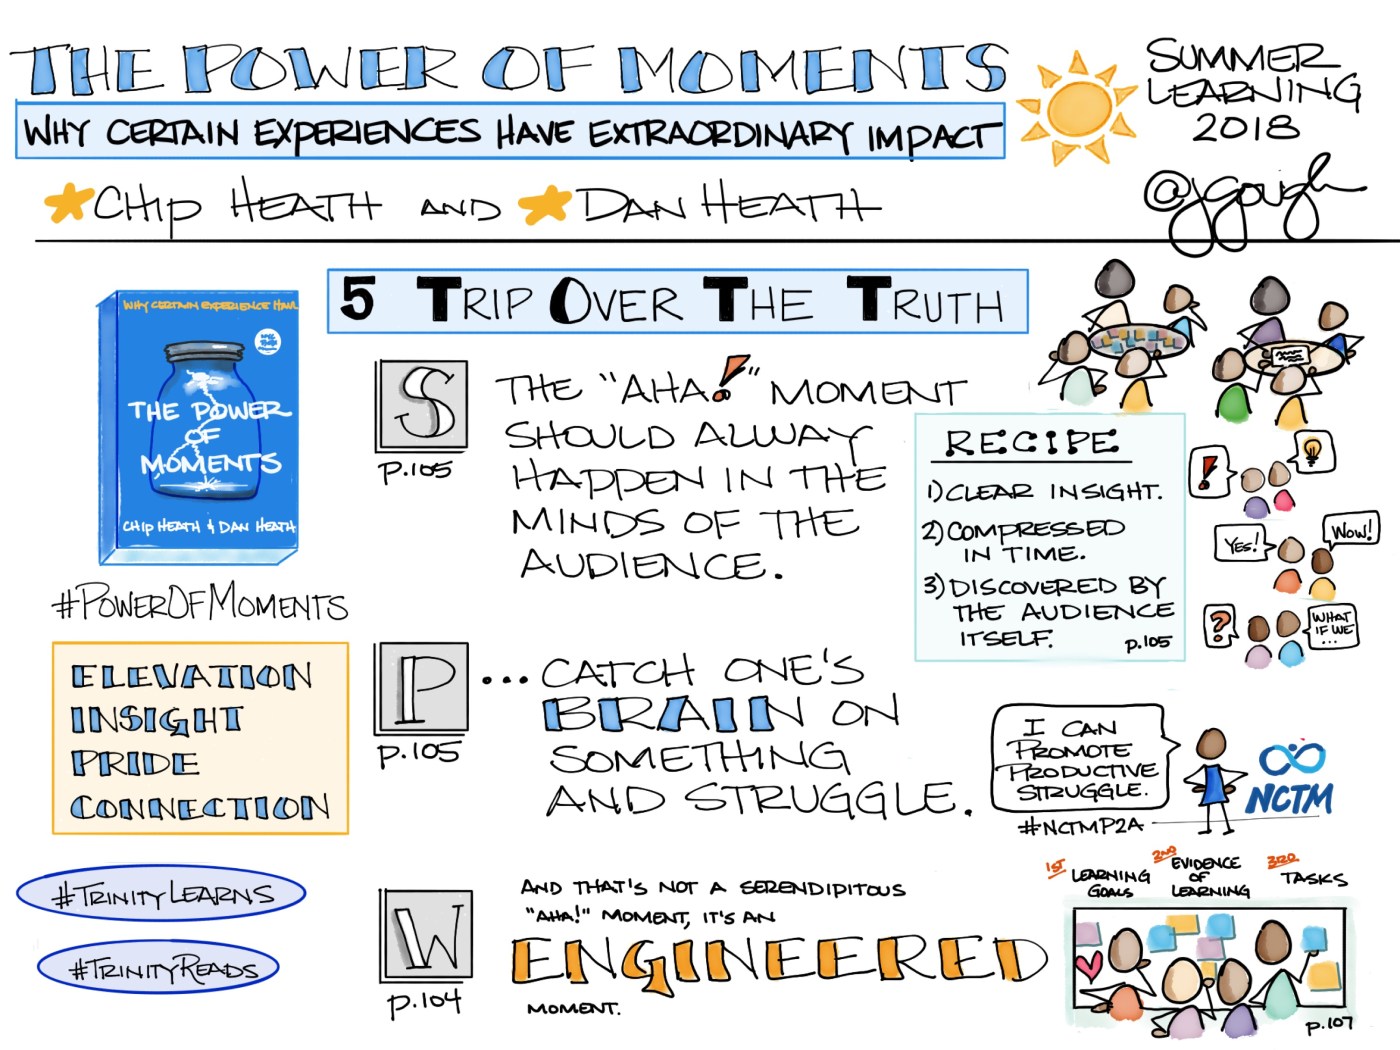 THE POWER OF MOMENTS
WHY CERTAIN EXPERIENCES HAVE EXTRAORDINARY IMPACT
CHIP HEATH AND DAN HEATH
SUMMER
LEARNING
2018
@jgough
WHY CERTAIN EXPERIENCE HAVE
THE POWER
OF
MOMENTS
CHIP HEATH & DAN HEATH
#POWEROFMOMENTS
ELEVATION
INSIGHT
PRIDE
CONNECTION
#TRINITYLEARNS
#TRINITYREADS
5 TRIP OVER THE TRUTH
S
p.105
THE "AHA!" MOMENT
SHOULD ALWAY
HAPPEN IN THE
MINDS OF THE
AUDIENCE.
RECIPE
1) CLEAR INSIGHT.
2) COMPRESSED
IN TIME.
3) DISCOVERED BY
THE AUDIENCE
ITSELF.
p.105
!
YES!
WOW!
?
WHAT
IF WE
...
P
p.105
... CATCH ONE'S
BRAIN ON
SOMETHING
AND STRUGGLE.
I CAN
PROMOTE
PRODUCTIVE
STRUGGLE.
#NCTMP2A
NCTM
W
p.104
AND THAT'S NOT A SERENDIPITOUS
"AHA!" MOMENT, IT'S AN
ENGINEERED
MOMENT.
1ST LEARNING
GOALS
2ND EVIDENCE
OF
LEARNING
3RD TASKS
p.107